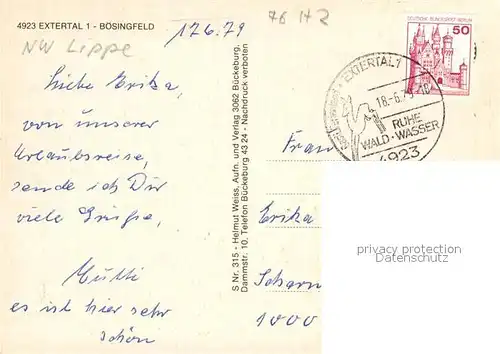 4923 EXTERTAL 1 - BÖSINGFELD
NW Lippe
17.6.79
76 H2
Liebe Erika,
von unserer
Urlaubsreise,
sende ich Dir
viele Grüße,
Mutti
es ist hier sehr
schön
S Nr. 315 - Helmut Weiss, Aufn. und Verlag 3062 Bückeburg,
Dammstr. 10, Telefon Bückeburg 43 24 - Nachdruck verboten
DEUTSCHE BUNDESPOST BERLIN
50
EXTERTAL 1
18.-6.79-18
RUHE
WALD·WASSER
4923
Frau
Erika
Scharn
1000
privacy protection
Datenschutz